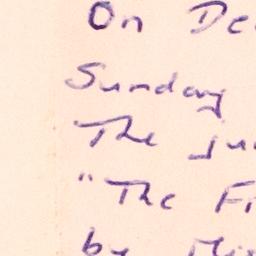 On De
Sunday
The Ju
"The Fi
by Mi